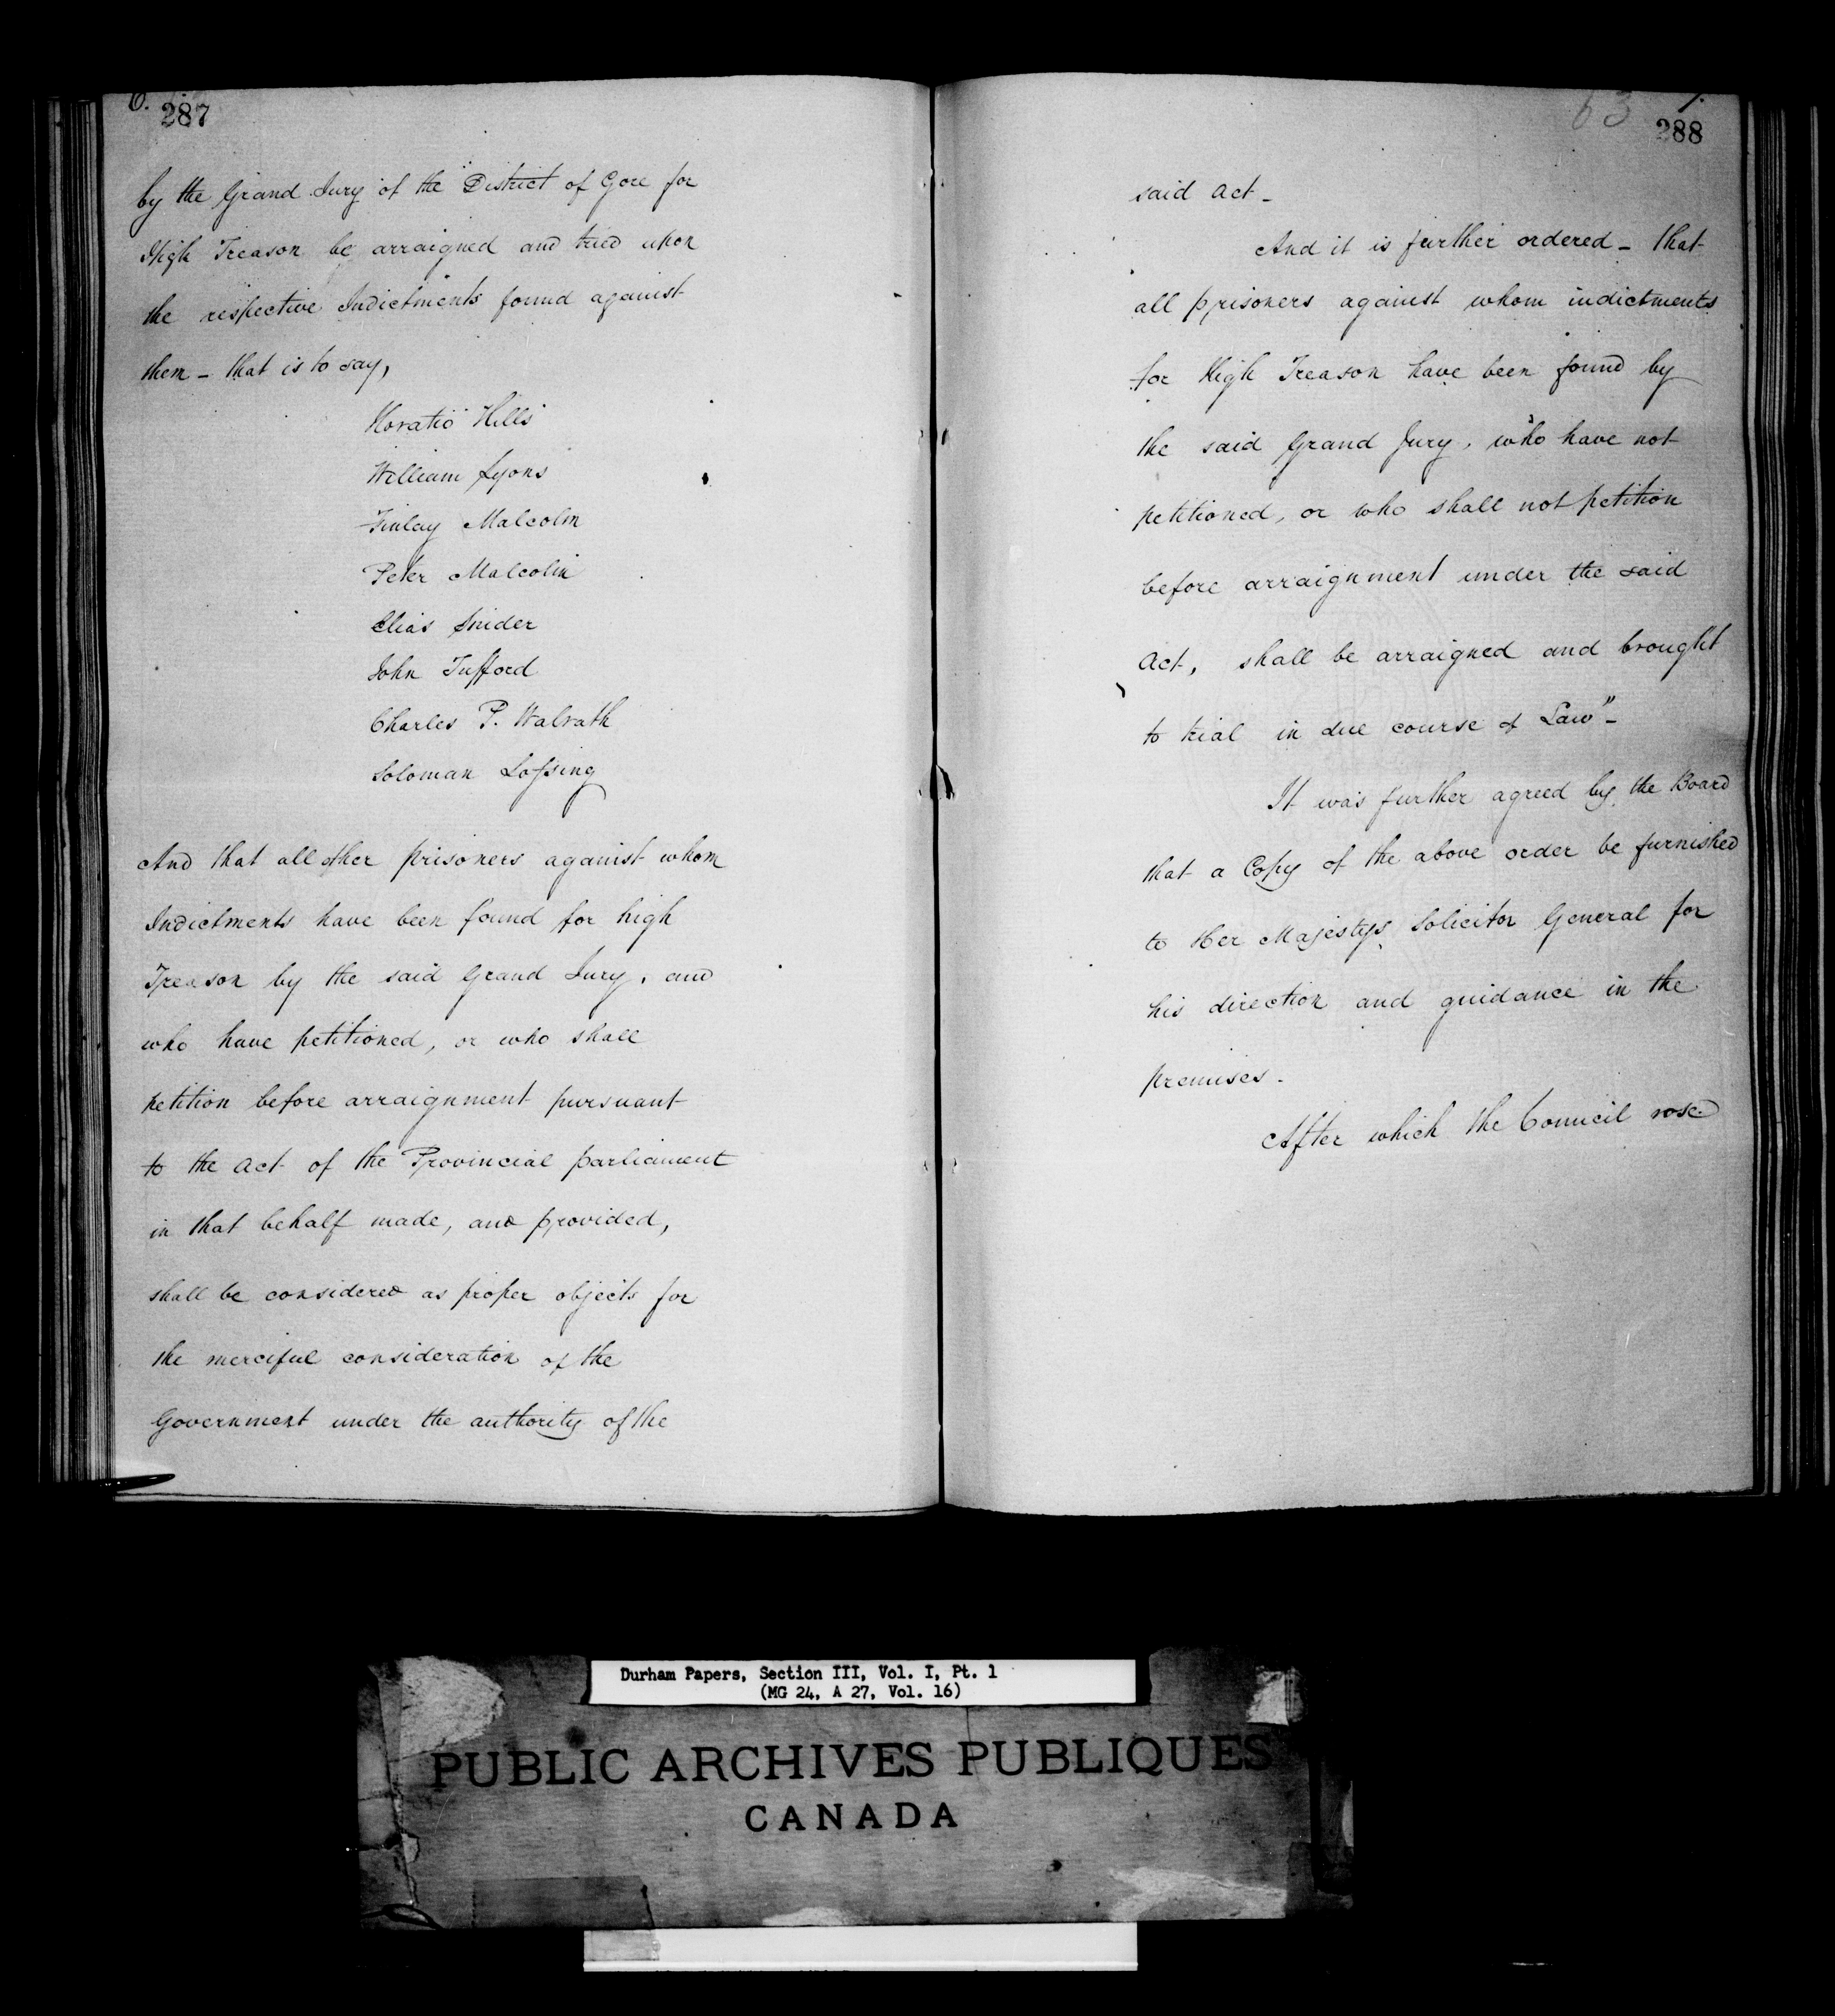 6.
287
by the Grand Jury of the District of Gore for
High Treason be arraigned and tried upon
the respective Indictments found against
them – that is to say,
Horatio Hills
William Lyons
Finlay Malcolm
Peter Malcolm
Elias Snider
John Tufford
Charles P. Walrath
Soloman Lossing
And that all other prisoners against whom
Indictments have been found for high
Treason by the said Grand Jury, and
who have petitioned, or who shall
petition before arraignment pursuant
to the Act of the Provincial parliament
in that behalf made, and provided,
shall be considered as proper objects for
the merciful consideration of the
Government under the authority of the
63 7.
288
said Act –
And it is further ordered – that
all prisoners against whom indictments
for High Treason have been found by
the said Grand Jury, who have not
petitioned, or who shall not petition
before arraignment under the said
Act, shall be arraigned and brought
to trial in due course of Law" –
It was further agreed by the Board
that a Copy of the above order be furnished
to Her Majestys Solicitor General for
his direction and guidance in the
premises –
After which the Council rose
Durham Papers, Section III, Vol. I, Pt. 1
(MG 24, A 27, Vol. 16)
PUBLIC ARCHIVES PUBLIQUES
CANADA